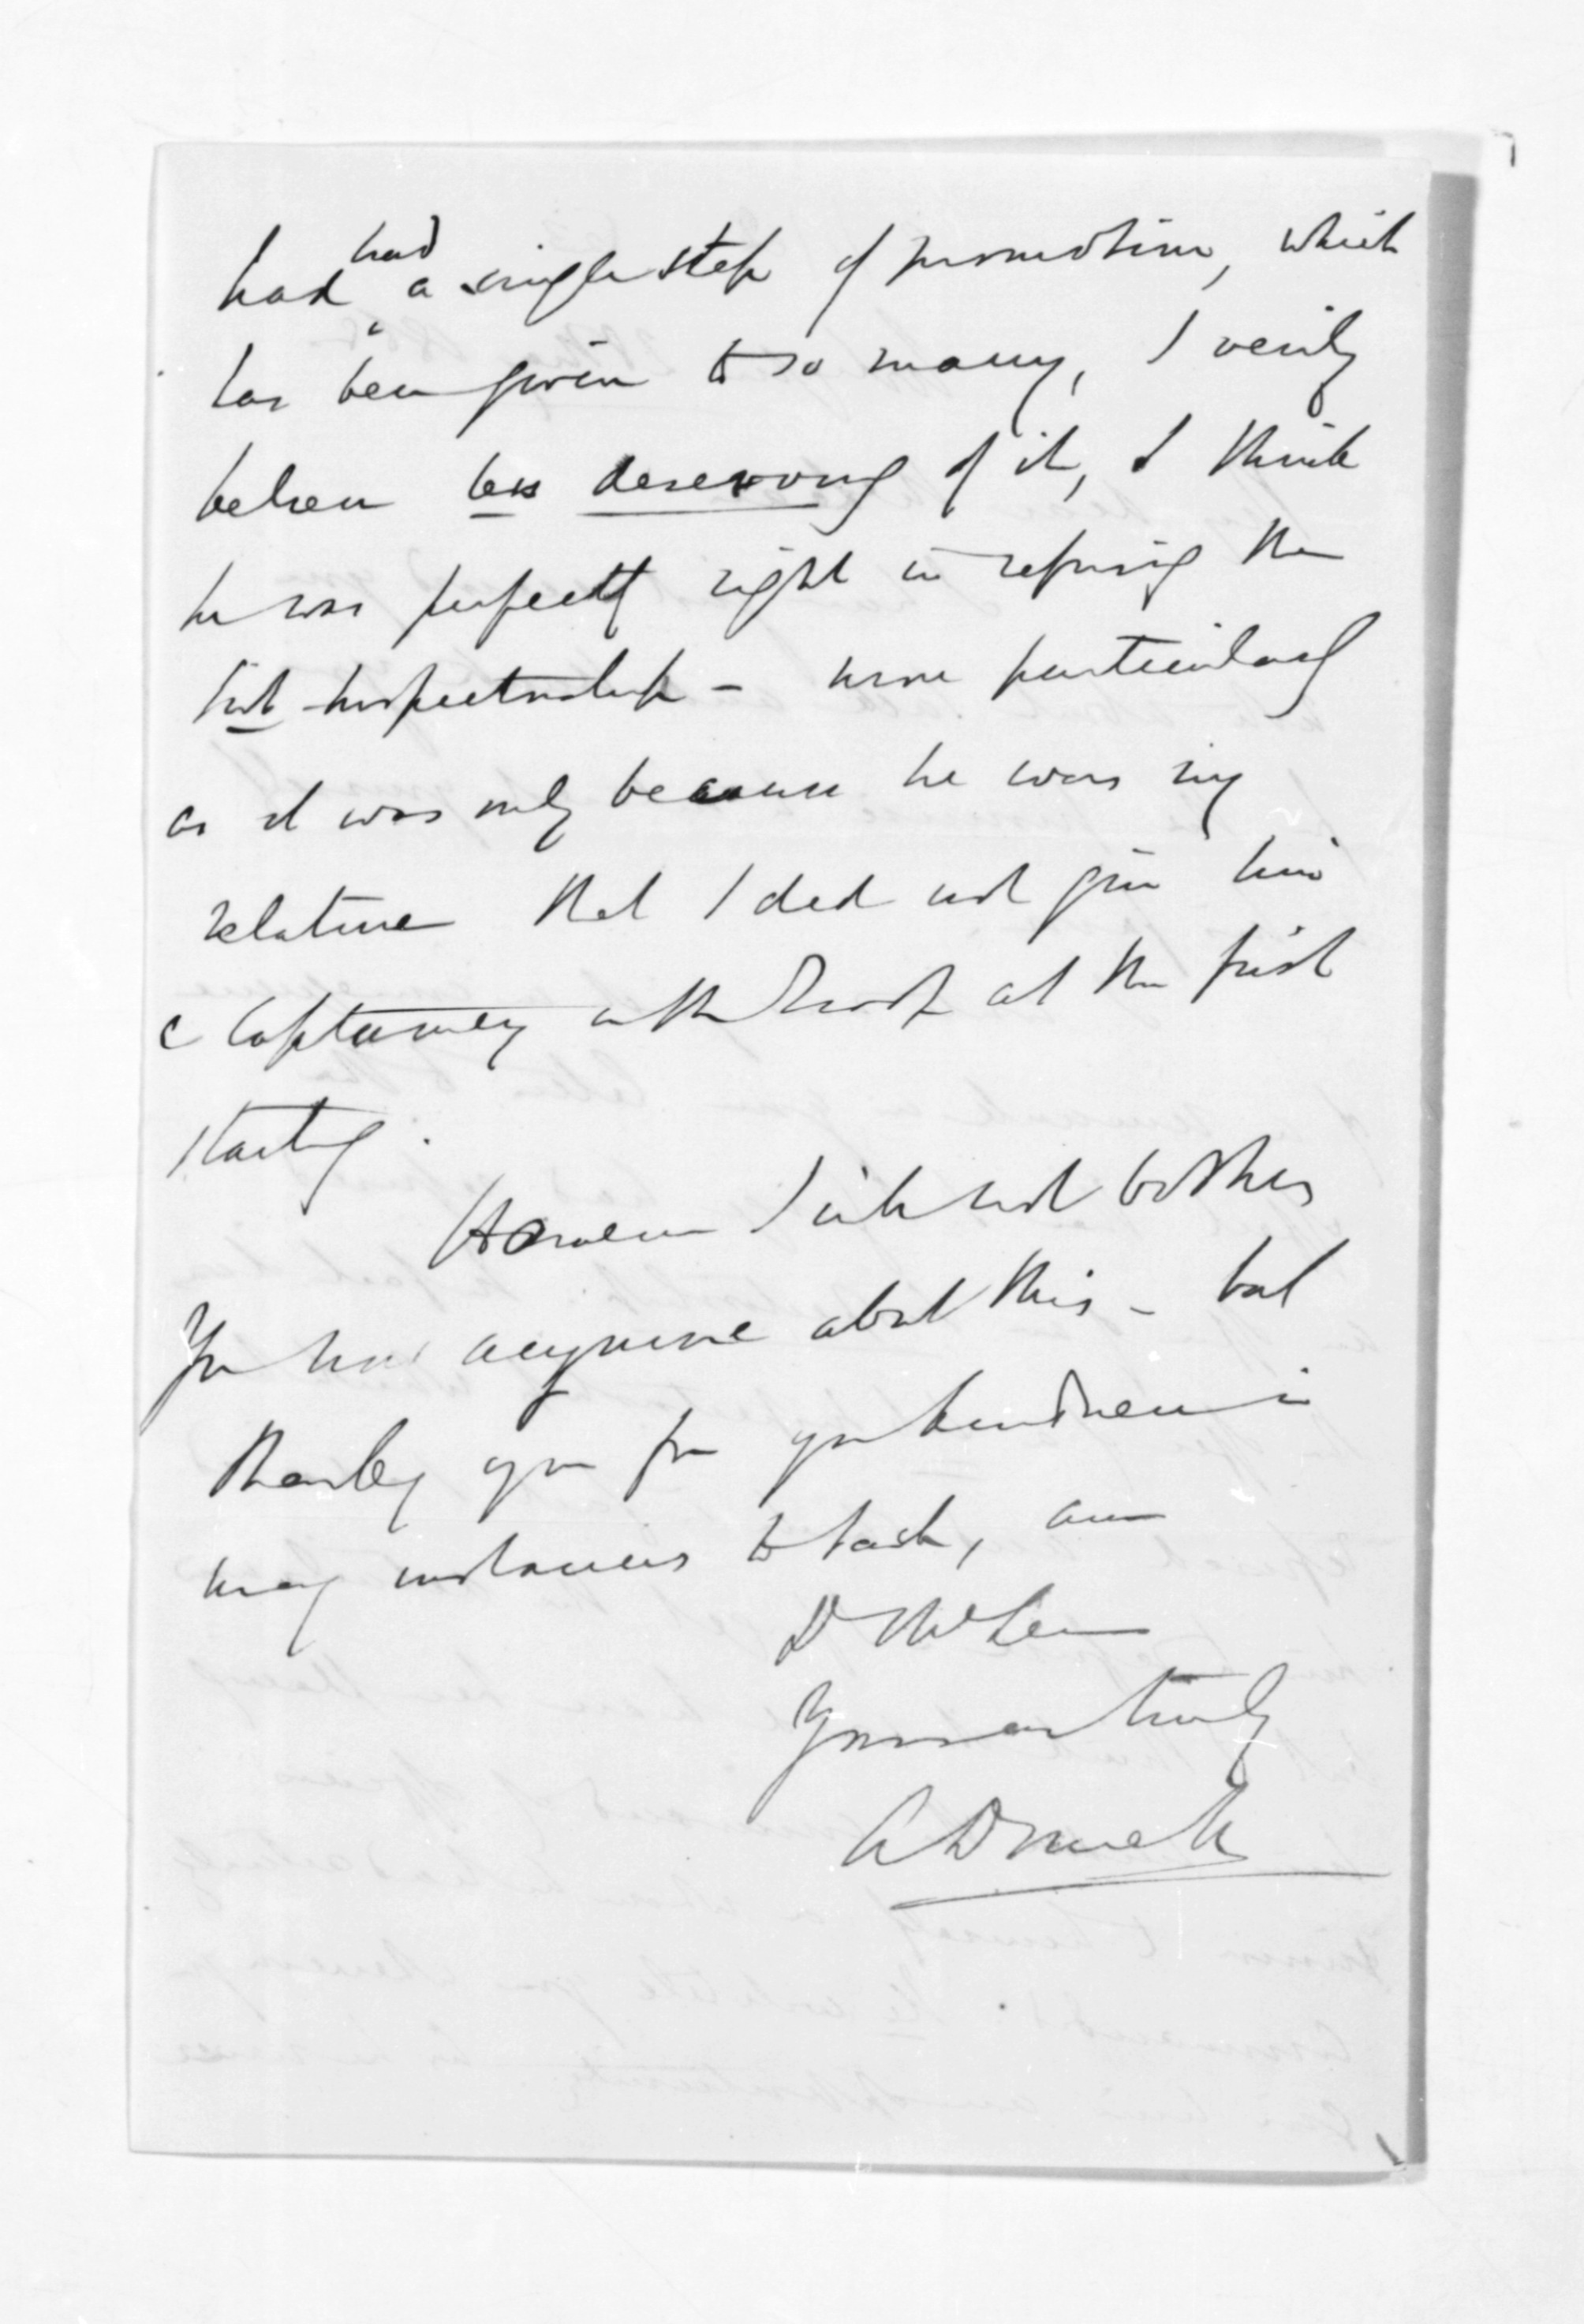 had had a single step of promotion, which
has been given to so many, I verily
believe less deserving of it, I think
he was perfectly right in refusing the
Sub-Inspectorship - more particularly
as it was only because he was my
relative that I did not give him
a Captaincy in the at the first
starting.
However I will not bother
you any more about this - but
thanking you for your kindness in
many instances to back, am
Dr McLean
Yours very truly